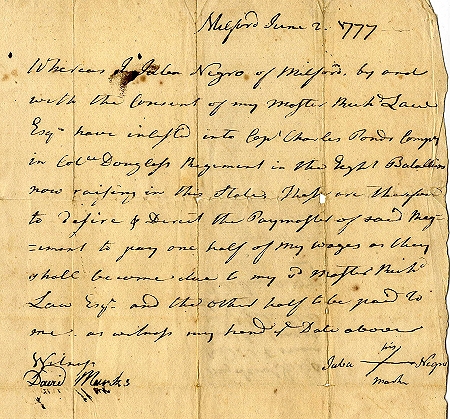 Milford June 2. 1777
Whereas I Juba Negro of Milford, by and
with the Consent of my Master Richd Law
Esqr have inlisted into Capt Charles Ponds Compy
in Coll Douglass Regement in the Eight Batallions
now raising in this State, These are therefore
to desire & Direct the Paymaster of said Reg-
-ment to pay one half of my wages as they
shall become due to my sd Master Richd
Law Esqr and the other half to be paid to
me as witness my hand ye Date above
Witness
David Munks
his
Juba Negro
mark